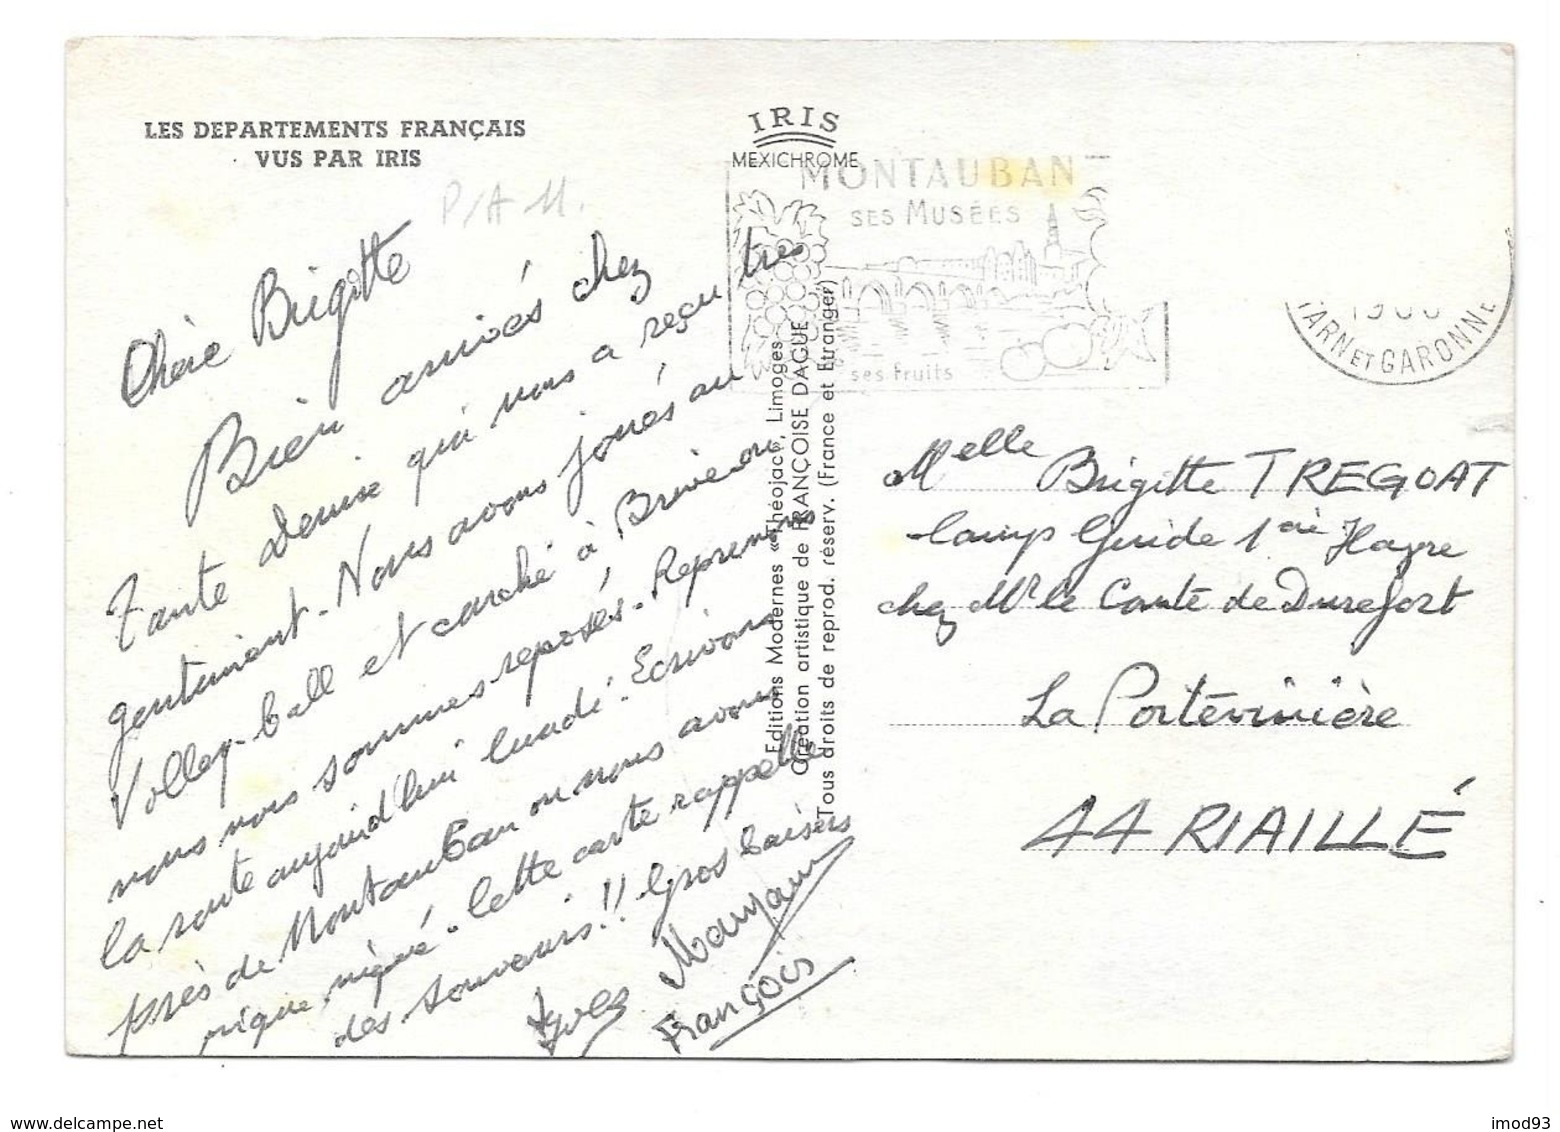 LES DEPARTEMENTS FRANÇAIS
VUS PAR IRIS
P/A 11.
Chère Brigitte
Bien arrivés chez
Tante Denise qui nous a reçu très
gentiment. Nous avons joués au
Volley-ball et marché à Brive où
nous nous sommes reposés. Reprenons
la route aujourd'hui lundi. Ecrivons
près de Montauban où nous avons
pique niqué. Cette carte rappelle
des souvenirs!! Gros baisers
Yves Maman
François
IRIS
MEXICHROME
Editions Modernes «Théojac», Limoges
Création artistique de FRANÇOISE DAGUE
Tous droits de reprod. réserv. (France et Etranger)
MONTAUBAN
SES MUSÉES
ses fruits
TARN ET GARONNE
Melle Brigitte TREGOAT
Camp Guide 1ère Havre
chez Mr le Comte de Durefort
La Poitevinière
44 RIAILLÉ
www.delcampe.net
imod93